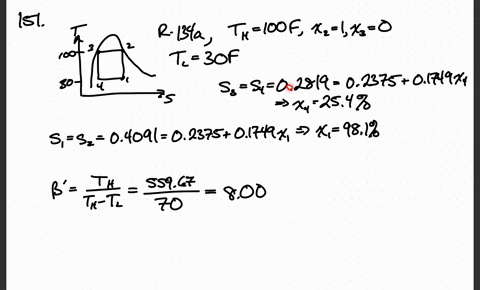 151.
T
100
80
3
2
4
1
S
R-134a, T_H=100F, x_2=1, x_3=0
T_L=30F
S_3=S_4=0.2819=0.2375+0.1749x_4
⇒ x_4=25.4%
S_1=S_2=0.4091=0.2375+0.1749x_1 ⇒ x_1=98.1%
β'= T_H/(T_H-T_L) = 559.67/70 = 8.00